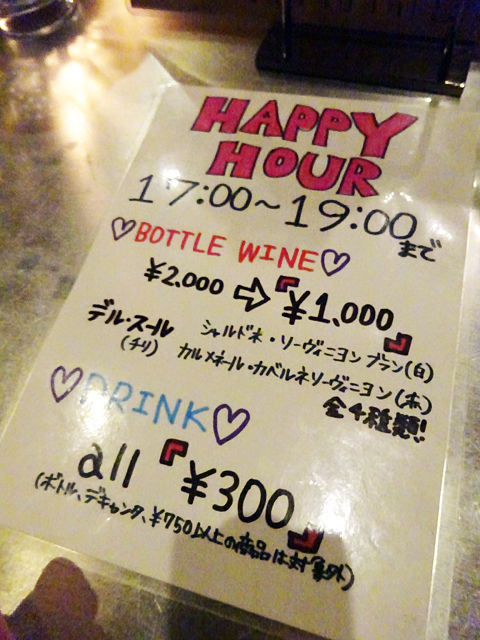 HAPPY
HOUR
17:00~19:00
まで
♡BOTTLE WINE♡
¥2,000 ⇨ 『¥1,000』
デル・スール
(チリ)
シャルドネ・ソーヴィニヨン ブラン(白)
カルメネール・カベルネソーヴィニヨン(赤)
全4種類!!
♡DRINK♡
all 『¥300』
(ボトル、デキャンタ、¥750以上の商品は対象外)